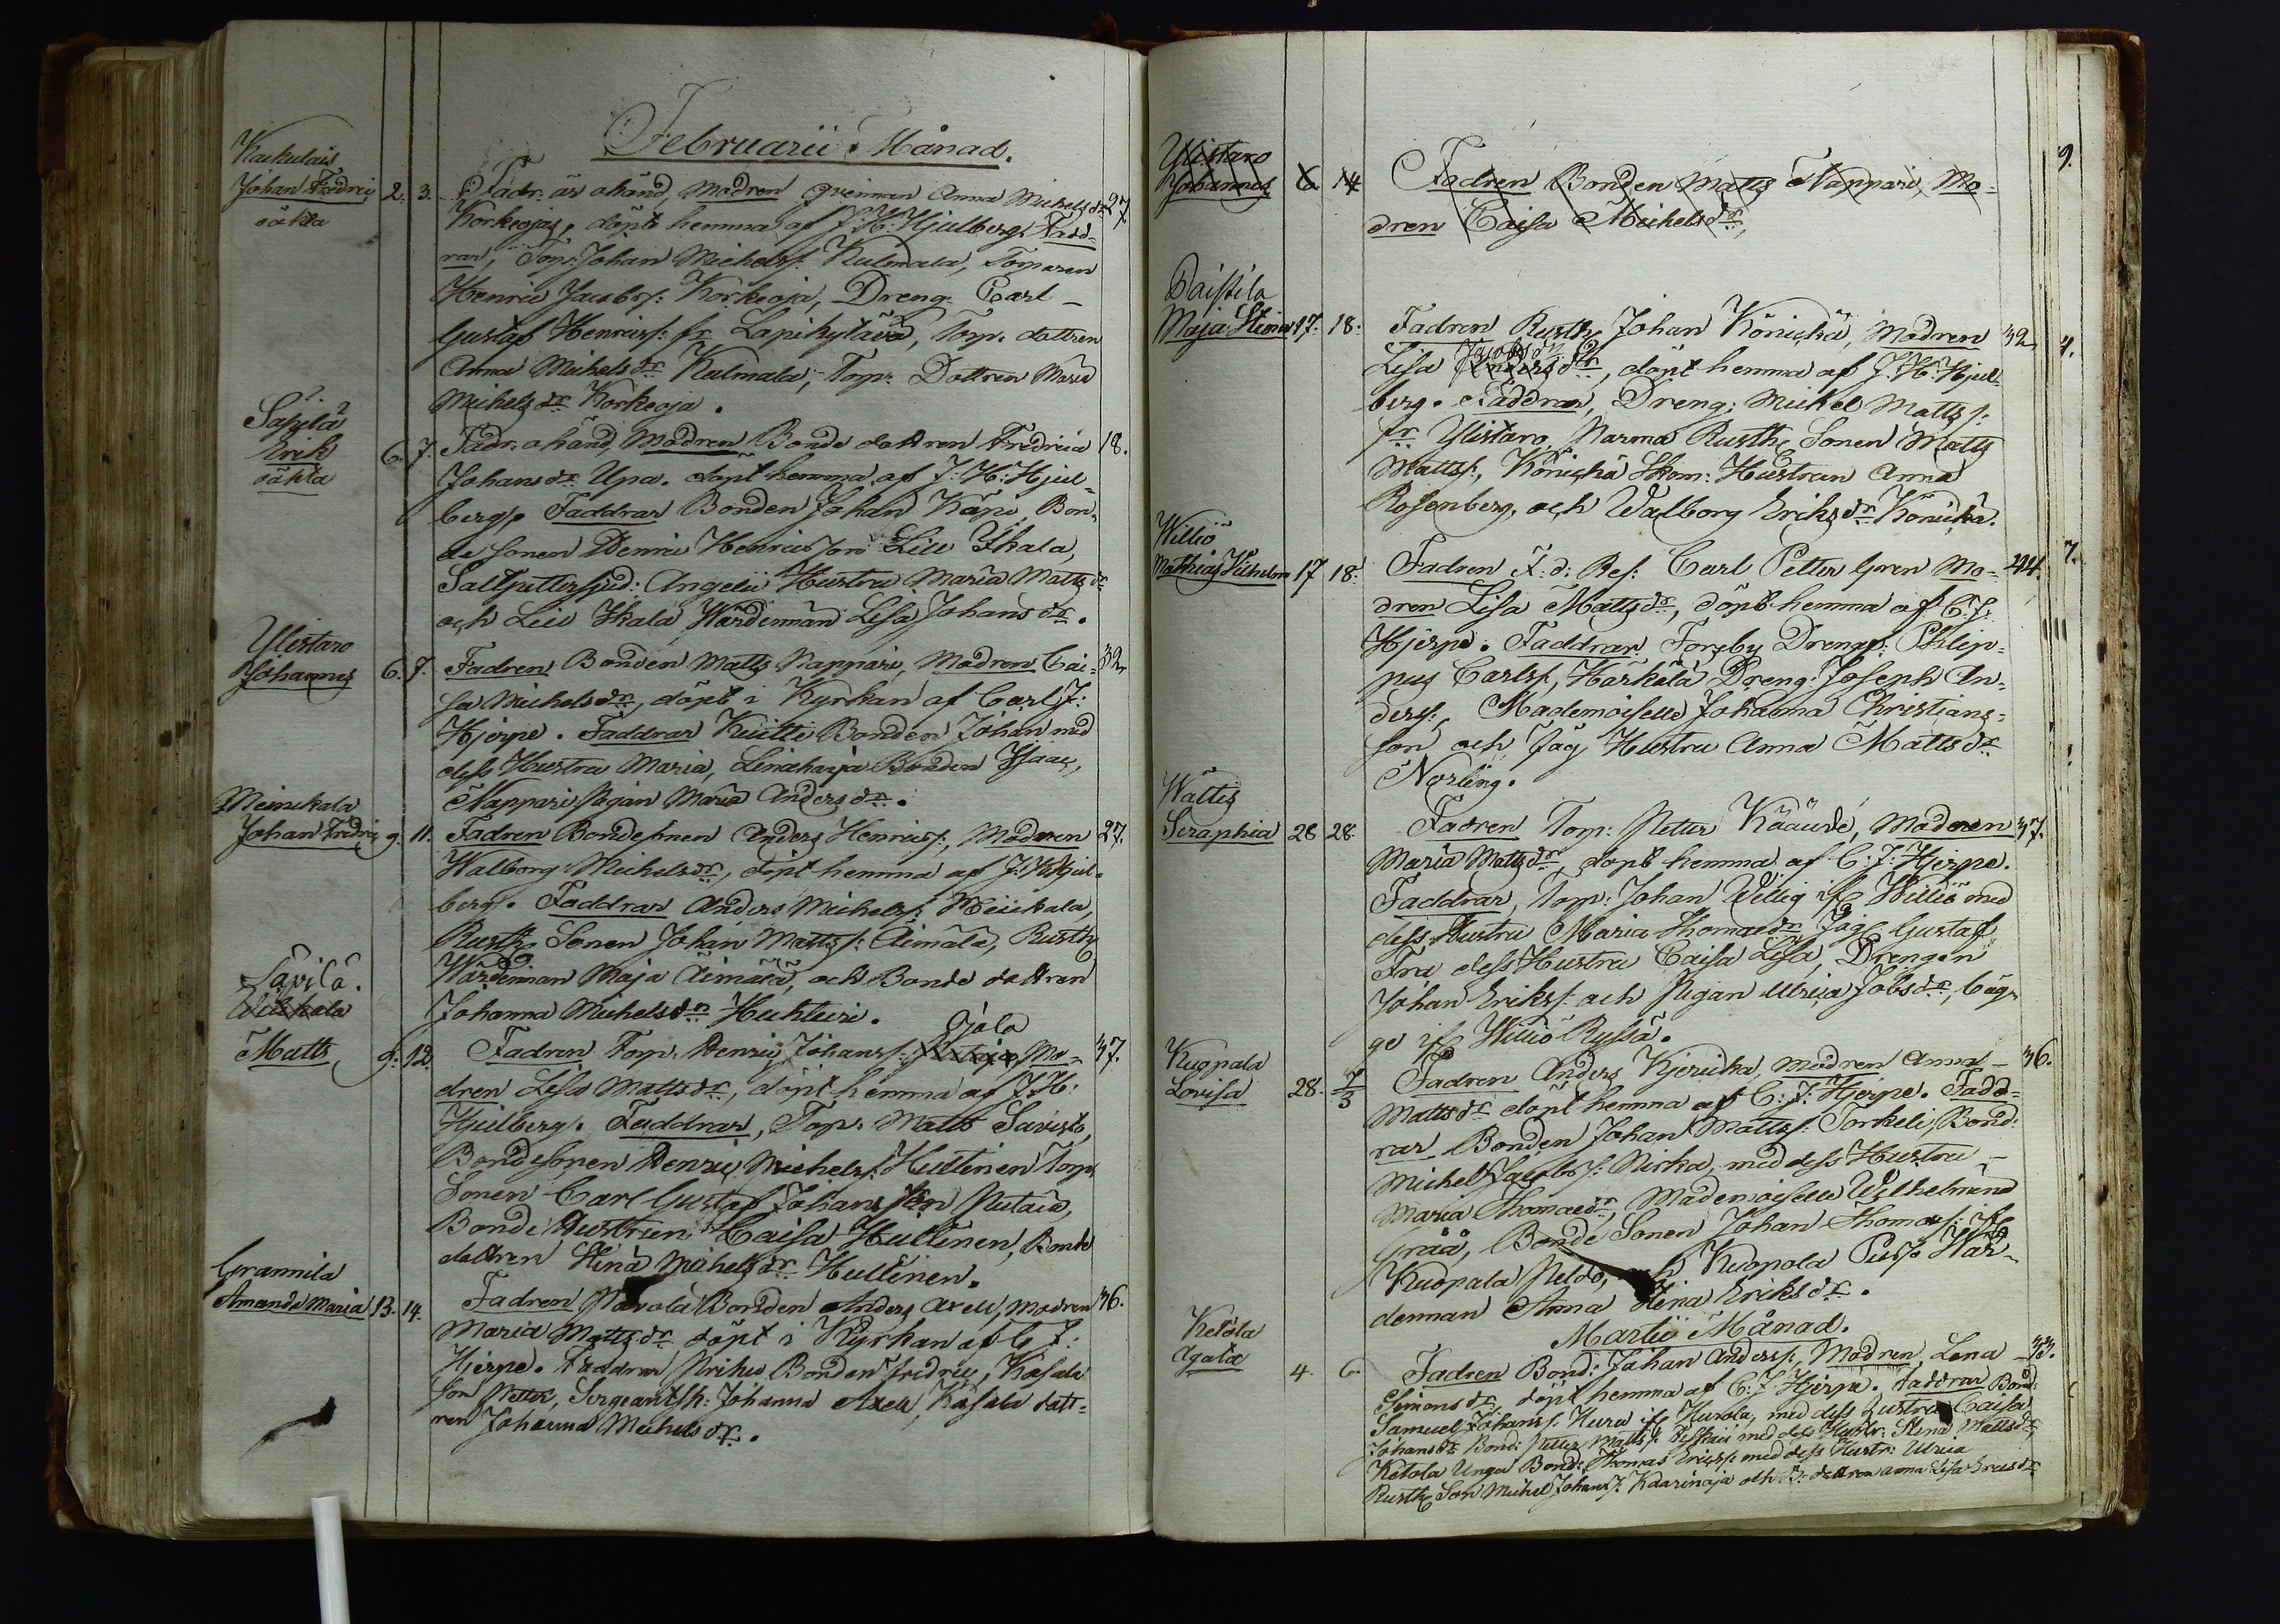 Februarii Månad.
Kaukulais
Johan Fredric 2. 3. Fadr. är okänd, Modren qvinnan Anna Michelsdr 27
oäkta
Korkeoja, döpt hemma af J. H. Hjulberg. Fadd-
rar, Torp. Johan Michelss: Kulmala, Torparen
Henric Jacobss: Korkeoja, Dreng. Carl
Gustaf Henricss: fr Lapikylävä, Torp. dottren
Anna Michelsdr Kulmala, Torp. Dottren Maria
Michelsdr Korkeoja.
Säpilä
Erik 6. 7. Fadr. okänd, Modren Bonde dottren Fredrica 18.
oäkta
Johansdr Upa. döpt hemma af J: H: Hjul-
berg. Faddrar Bonden Johan Käpi, Bon-
de sonen Henric Henricsson Lill Ikala,
Saltputtersjud: Angelii Hustru Maria Mattsdr
och Lill Ikala Wärdinnan Lisa Johansdr.
Ylistaro
Johannes 6. 7. Fadren Bonden Matts Nappari, Modren Cai- 32
sa Michelsdr, döpt i Kyrkan af Carl J:
Hjerpe. Faddrar Kuitti Bonden Johan med
dess Hustru Maria, Linaharja Bonden Isaac,
Nappari pigan Maria Andersdr.
Meinikala
Johan Fredric 9. 11. Fadren Bondesonen Anders Henricss:, Modren 27.
Walborg Michelsdr, döpt hemma af J: H: Hjul-
berg. Faddrar Anders Michelss: Meinikala,
Rusth. Sonen Johan Mattss: Äimälä, Rusth.
Wärdinnan Maja Äimälä, och Bonde dottren
Johanna Michelsdr Huhteiri.
Säpilä.
Matts 9. 12. Fadren Torp. Henric Johanss: Ojala Mo- 37.
dren Lisa Mattsdr, döpt hemma af J. H:
Hjulberg. Faddrar, Torp. Matts Savisto,
Bondesonen Henric Michelss: Hullinen Torp.
Sonen Carl Gustaf Johansson Rutaia,
Bonde Hustrun Caisa Hullinen, Bonde
dottren Stina Michelsdr Hullinen.
Grannila
Amanda Maria 13. 14. Fadren Pavola Bonden Anders Axell, Modren 36.
Maria Mattsdr döpt i Kyrkan af C. J:
Hjerpe. Faddrar Prihu Bonden Fredric, Kasala
son Petter, Sergeantsk: Johanna Axell, Kasala dott-
ren Johanna Michelsdr.
9.
Ylistaro
Johannes 6 14 Fadren Bonden Matts Nappari, Mo-
dren Caisa Michelsdr,
Paistila
Maja Stina 17. 18. Fadren Rusth. Johan Könickä, Modren 32 4.
Lisa Jacobsdr Andersdr, döpt hemma af J. H. Hjul-
berg. Faddrar, Dreng. Michel Mattss:
fr Ylistaro, Parma Rusth. Sonen Matts
Mattss:, Könickä Skom: Hustrun Anna
Rosenberg, och Walborg Eriksdr Könickä.
Williö
Mathias Wilhelm 17 18. Fadren F: d: Ref: Carl Petter Gren Mo- 44. 7.
dren Lisa Mattsdr, döpt hemma af C. J.
Hjerpe. Faddrar Forsby Drengs: Philip-
pus Carlss:, Härkälä Dreng: Joseph An-
derss:, Mademoiselle Johanna Christians-
son, och Jäg Hustru Anna Mattsdr
Norling.
Wättis
Seraphia 28 28. Fadren Torp: Petter Kääurdé, Modren 37.
Maria Mattsdr, döpt hemma af C: J: Hjerpe.
Faddrar, Torp: Johan Willig ifr Williö med
dess Hustru Maria Thomasdr Jäg. Gustaf
Fru dess Hustru Caisa Lisa, Drengen
Johan Erikss: och Pigan Ulrica Jobsdr, bäg-
ge ifr Williö Ryssä.
Kuopala
Lovisa 28. 4/3 Fadren Anders Kjericka, Modren Anna 36.
Mattsdr döpt hemma af C: J: Hjerpe. Fadd-
rar Bonden Johan Mattss: Torkeli, Bond:
Michel Jacobss: Pirka, med dess Hustru
Maria Thomasdr, Mademoiselle Wilhelmina
Gråå, Bonde Sonen Johan Thomass: ifr
Kuopala Peldo, och Kuopala Puso Wär-
dennan Anna Stina Eriksdr.
Martii Månad.
Ketola
Agata 4. 6. Fadren Bond: Johan Anderss:, Modren, Lena 33.
Simonsdr, döpt hemma af C: J Hjerpe. Faddrar Bond:
Samuel Johanss: Huru ifr Hurola, med dess Hustru Caisa
Johansdr Bond: Petter Mattss: med dess Hustr: Stina Mattsdr
Ketola Unga Bond: Thomas Ericss: med dess Hustr: Ulrica
Rusth. Son Michel Johanss: Kaarinoja och B: dottren Anna Lisa Ericsdr